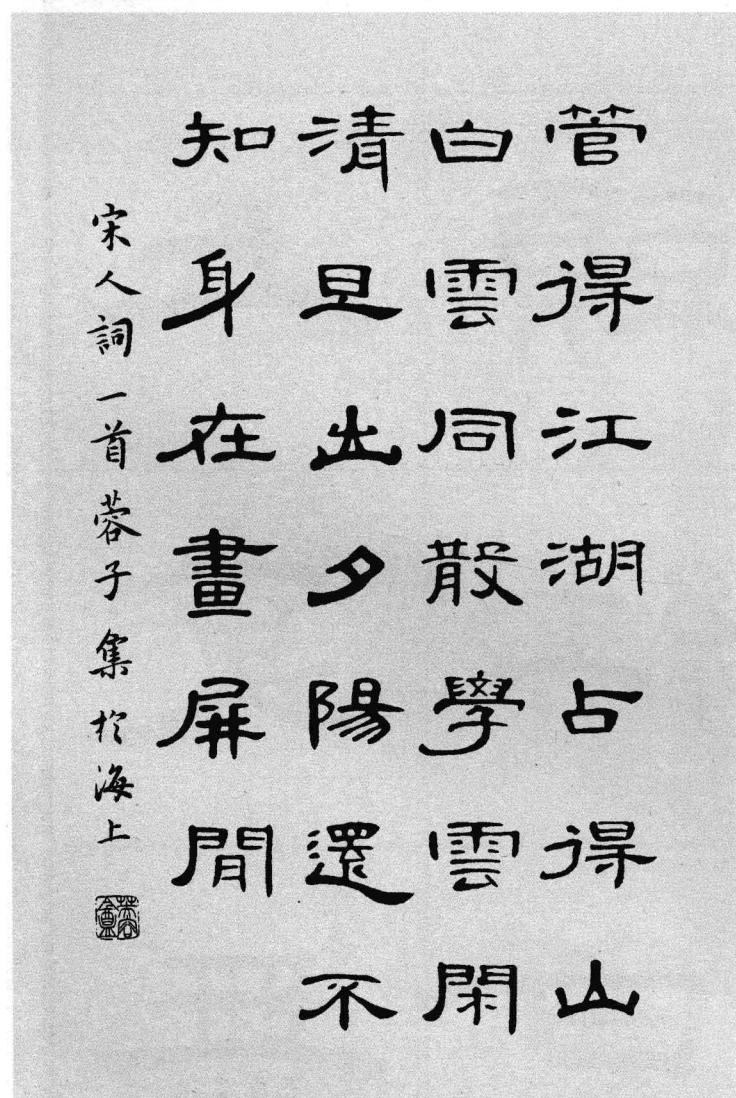 管得江湖占得山
白雲同散學雲閑
清旦出夕陽還不
知身在畫屏間
宋人詞一首蓉子集於海上